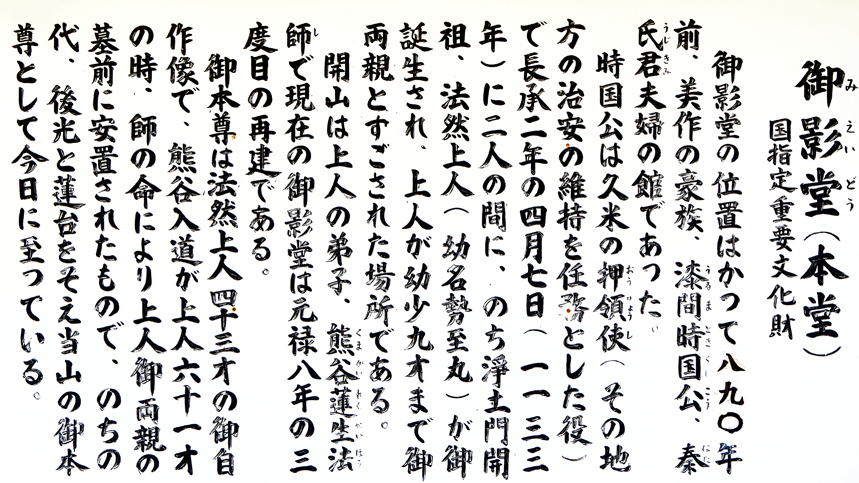 御影堂（本堂）
国指定重要文化財
御影堂の位置はかつて八九〇年
前、美作の豪族、漆間時国公、秦
氏君夫婦の館であった。
時国公は久米の押領使（その地
方の治安の維持を任務とした役）
で長承二年の四月七日（一一三三
年）に二人の間に、のち淨土門開
祖、法然上人（幼名勢至丸）が御
誕生され、上人が幼少九才まで御
両親とすごされた場所である。
開山は上人の弟子、熊谷蓮生法
師で現在の御影堂は元禄八年の三
度目の再建である。
御本尊は法然上人四十三才の御自
作像で、熊谷入道が上人六十一才
の時、師の命により上人御両親の
墓前に安置されたもので、のちの
代、後光と蓮台をそえ当山の御本
尊として今日に至っている。